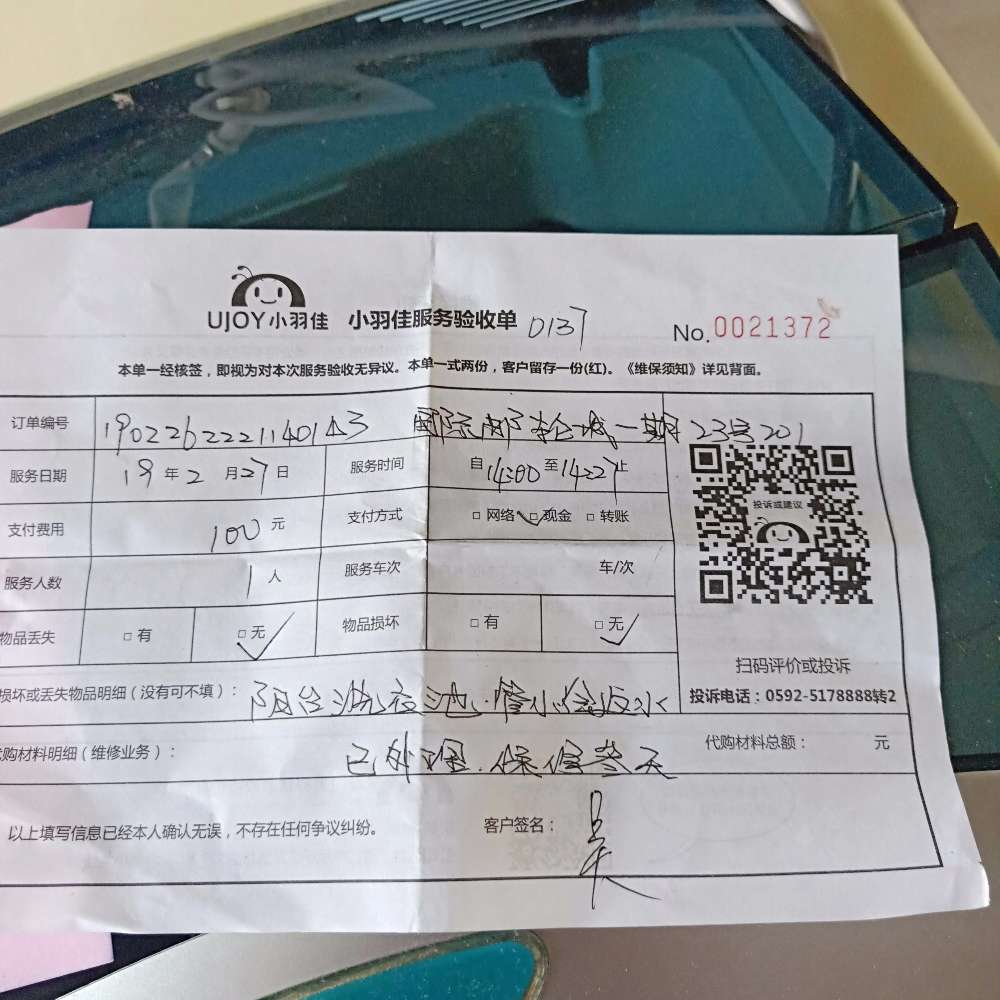 UJOY小羽佳 小羽佳服务验收单 0137 No.0021372
本单一经核签，即视为对本次服务验收无异议。本单一式两份，客户留存一份(红)。《维保须知》详见背面。
订单编号 1902262221140143 一期23号201
服务日期 19年2月27日 服务时间 自14:00至14:27止
支付费用 100元 支付方式 □网络 □现金 □转账
服务人数 1人 服务车次 车/次
物品丢失 □有 □无 物品损坏 □有 □无
投诉或建议
扫码评价或投诉
投诉电话：0592-5178888转2
损坏或丢失物品明细（没有可不填）： 阳台洗衣池
购材料明细（维修业务）： 已处理.保修叁天 代购材料总额： 元
以上填写信息已经本人确认无误，不存在任何争议纠纷。 客户签名：